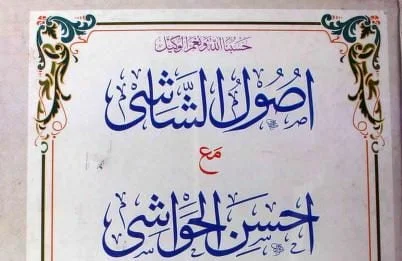 حسبنا الله ونعم الوكيل
اصول الشاشی
مع
احسن الحواشی